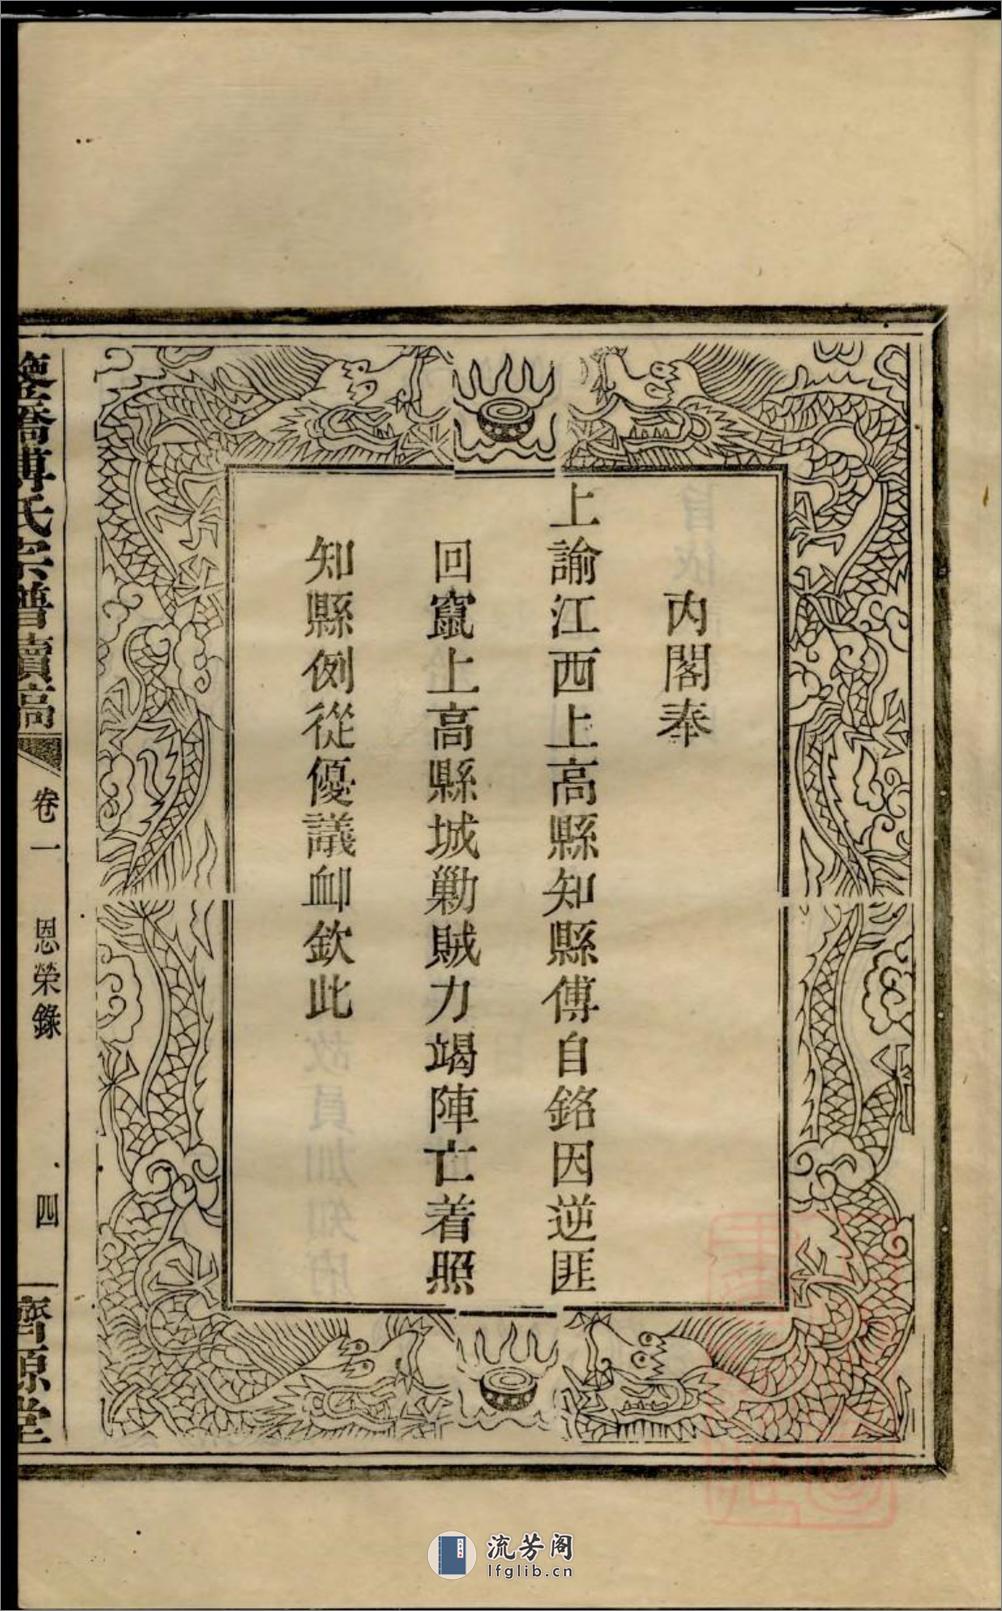 內閣奉
上諭江西上高縣知縣傅自銘因逆匪
回竄上高縣城勦賊力竭陣亡着照
知縣例從優議卹欽此
傅氏宗譜續稿
卷一
恩榮錄
四
濟源堂
流芳阁
lfglib.cn